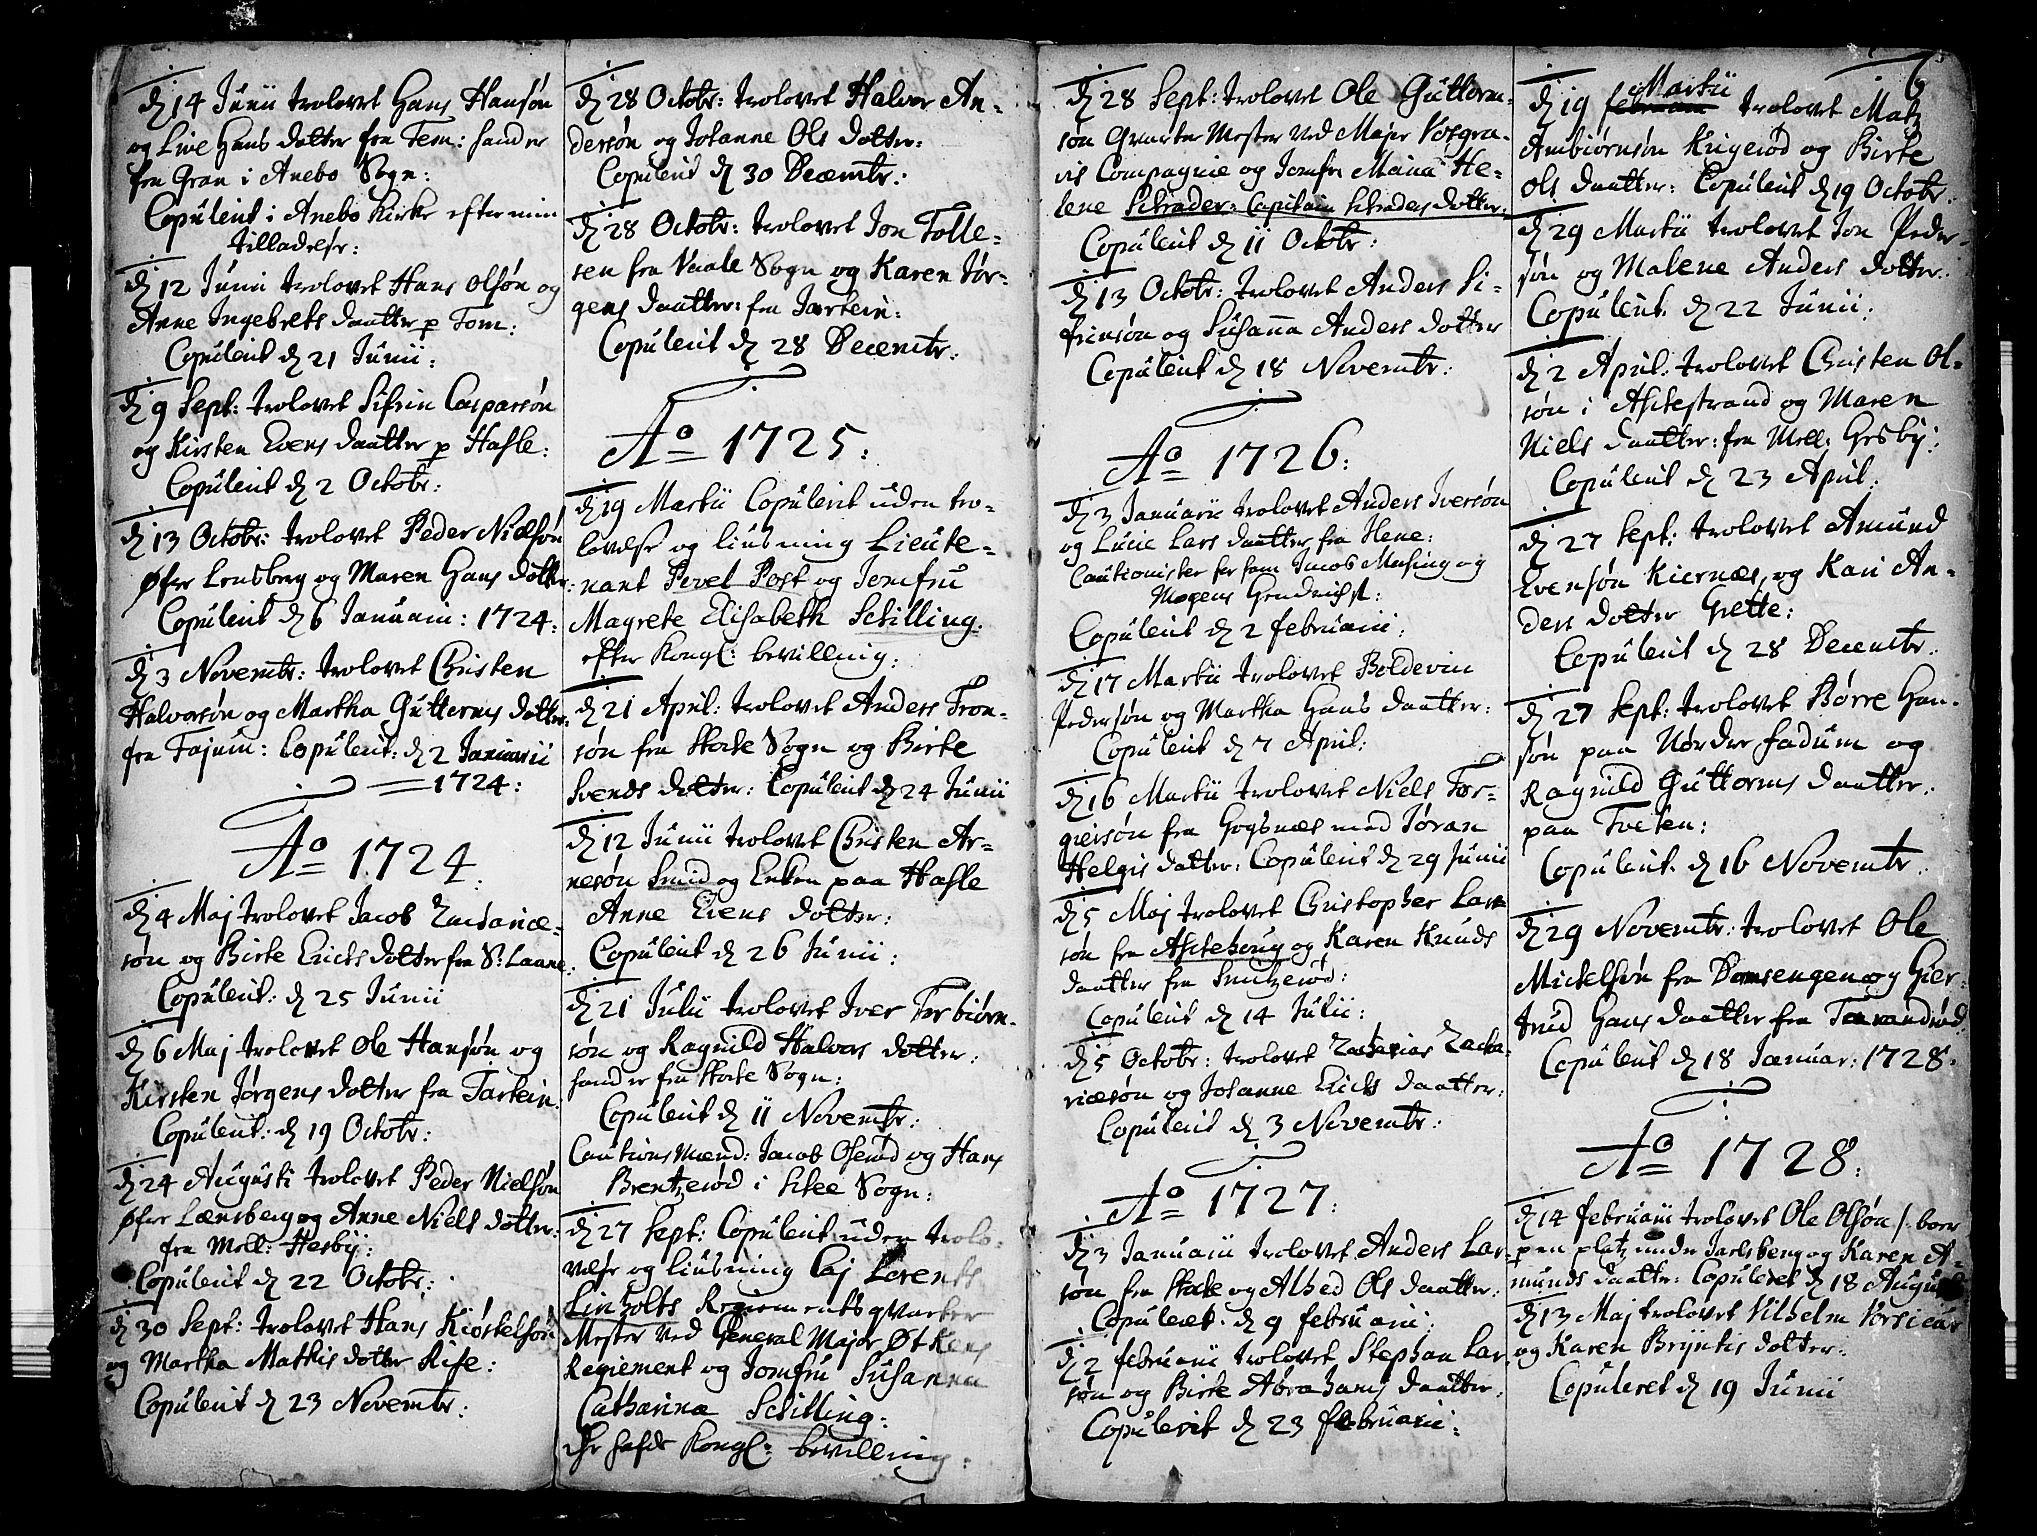 d 14 Junii trolovet Hans Hansøn
og Live Hans dotter fra Fem: hand er
fra Gran i Anebo Sogn:
Copuleret i Anebo Kirke efter min
tilladelse:
d 12 Junii trolovet Hans Olsøn og
Anne Ingebrets daatter p Fom:
Copulerit d 21 Junii:
d 9 Sept: trolovet Sifrin Casparsøn
og Kirsten Evens daatter p Hasle:
Copulerit d 2 Octobr:
d 13 Octobr: trolovet Peder Nielsøn
Øfre Lensberg og Maren Hans dotter
Copulerit d 6 Januarii: 1724:
d 3 Novembr: trolovet Christen
Halvorsøn og Martha Guttorms dotter:
fra Fajum: Copulerit: d 2 Januarii
1724:
Ao 1724
d 4 Maj trolovet Jacob Zachariæ-
søn og Birte Erichs dotter fra S: Laane:
Copulerit: d 25 Junii
d 6 Maj trolovet Ole Hansøn og
Kirsten Jørgens dotter fra Jartein:
Copulerit: d 19 Octobr:
d 24 Augusti trolovet Peder Nielsøn
Øfre Lænsberg og Anne Niels dotter:
fra Mell: Hesby:
Copulerit d 22 Octobr:
d 30 Sept: trolovet Hans Kiøstelsøn
og Martha Mathis dotter Rise:
Copulerit d 23 Novembr:
d 28 Octobr: trolovet Halvor An-
dersøn og Johanne Ols dotter:
Copulerit d 30 Decembr:
d 28 Octobr: trolovet Jon Tolle-
sen fra Vaale Sogn og Karen Jør-
gens daatter: fra Jartein:
Copulerit d 28 Decembr:
Ao 1725:
d 19 Martii Copulerit uden tro-
lovelse og liusning Lieute-
nant Povel Post og Jomfru
Magrete Elisabeth Schilling:
efter Kongl: bevilling:
d 21 April: trolovet Anders Tron-
søn fra Stocke Sogn og Birte
Svends dotter: Copulerit d 24 Junii
d 12 Junii trolovet Christen Ar-
nesøn Smid og Enken paa Hasle
Anne Evens dotter:
Copulerit d 26 Junii:
d 21 Julii trolovet Iver Torbiørn-
søn og Ragnild Halvors dotter:
hand er fra Stocke Sogn:
Copulerit d 11 Novembr:
Cautions mænd: Jacob Oserød og Hans
Brentzerød i Sckee Sogn:
d 27 Sept: Copulerit uden trolo-
velse og liusning Caj Lorents
Linholts Regiements qvarteer
Mester ved General Major Øtkens
Regiement og Jomfru Susanna
Catharina Schilling:
der hafde Kongl: bevilling:
d 28 Sept: trolovet Ole Guttorm-
søn Qvarteer Mester ved Major Vosgra-
vis Compagnie og Jomfru Maria He-
lene Schrader: Capitain Schraders dotter:
Copulerit d 11 Octobr:
d 13 Octobr: trolovet Anders Si-
frinsøn og Susanna Anders dotter
Copulerit d 18 Novembr:
Ao 1726:
d 3 Januarii trolovet Anders Iversøn
og Lucie Lars daatter fra Hene:
Cautionister for ham Jacob Musing og
Mogens Hendrichs:
Copulerit d 2 februarii:
d 17 Martii trolovet Boldevin
Pedersøn og Martha Hans daatter:
Copulerit d 7 April:
d 16 Martii trolovet Niels Tor-
giersøn fra Gogsnæs med Jøran
Helgis dotter: Copulerit d 29 Junii
d 5 Maj trolovet Christopher Lar-
søn fra Aschehoug og Karen Knuds
daatter fra Smitzerød:
Copulerit d 14 Julii:
d 5 Octobr: trolovet Zacharias Zacha-
riæsøn og Johanne Erichs daatter:
Copulerit d 3 Novembr:
Ao 1727:
d 3 Januarii trolovet Anders Lar-
søn fra Stocke og Alhed Ols daatter:
Copuleret d 9 februarii:
d 2 februarii trolovet Stephan Lar-
søn og Birte Abrahams daatter:
Copulerit d 23 februarii:
6
d 19 februarii Martii trolovet Matz
Ambiørnsøn Krigerød og Birte
Ols daatter: Copulerit d 19 Octobr:
d 29 Martii trolovet Jon Peder-
søn og Malene Anders dotter:
Copulerit d 22 Junii:
d 2 April: trolovet Christen Ol-
søn i Aschestrand og Maren
Niels daatter: fra Mell: Gresby:
Copulerit d 23 April:
d 27 Sept: trolovet Amund
Evensøn Kiernæs, og Kari An-
ders dotter Grette:
Copulerit d 28 Decembr:
d 27 Sept: trolovet Børre Han-
søn paa Nørder fadum og
Ragnild Guttorms daatter:
paa Tveten:
Copulerit d 16 Novembr
d 29 Novembr: trolovet Ole
Michelsøn fra Domsengen og Gier-
trud Hans daatter fra Taarandrød:
Copulerit d 18 Januar: 1728:
Ao 1728:
d 14 februarii trolovet Ole Olsøn /: boer
paa platz under Jarlsberg og Karen A-
munds daatter: Copuleret d 18 August
d 13 Maj trolovet Vilhelm
og Karen Bryntis dotter:
Copuleret d 19 Junii